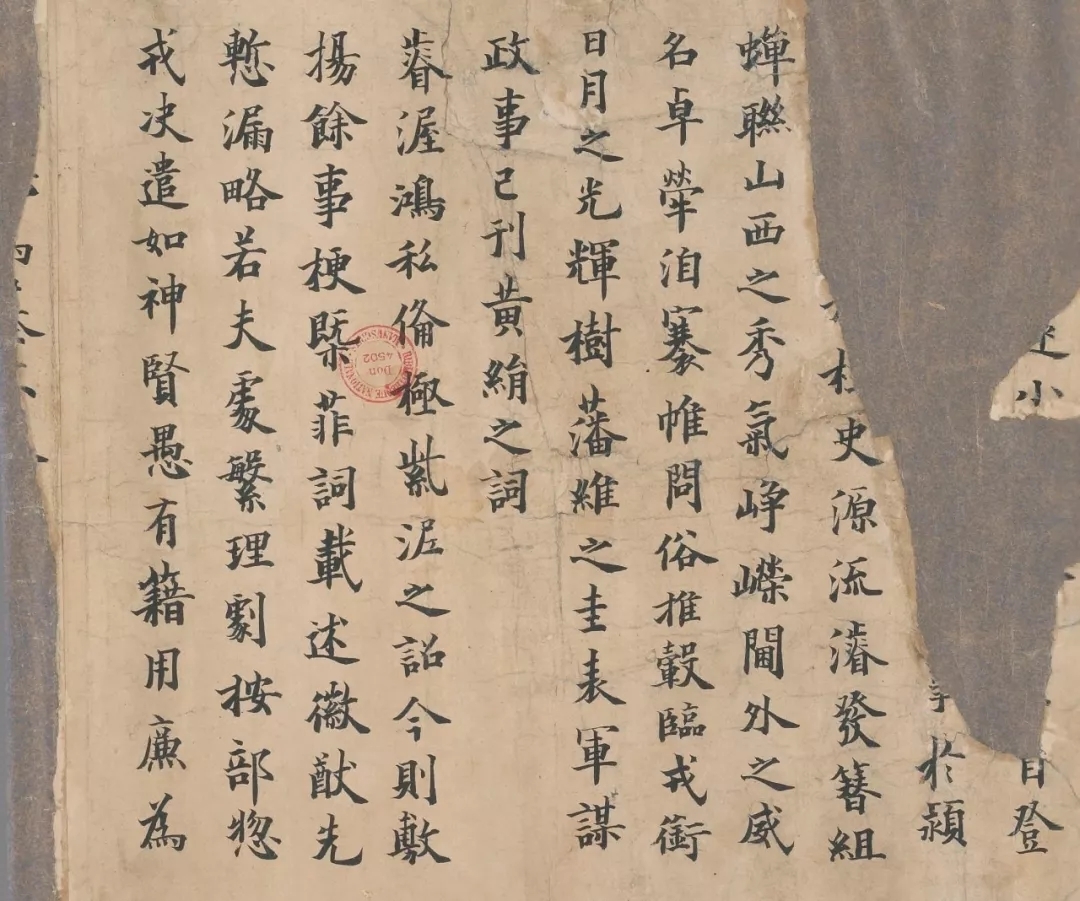 小 日登
於潁
柱史源流濬發簪組
蟬聯山西之秀氣崢嶸閫外之威
名卓犖洎褰帷問俗推轂臨戎銜
日月之光輝樹藩維之圭表軍謀
政事已刊黃絹之詞
眷渥鴻私備極紫泥之詔今則敷
揚餘事梗槩菲詞載述徽猷先
慙漏略若夫處繁理劇按部惣
戎决遣如神賢愚有籍用廉為
Don
4502